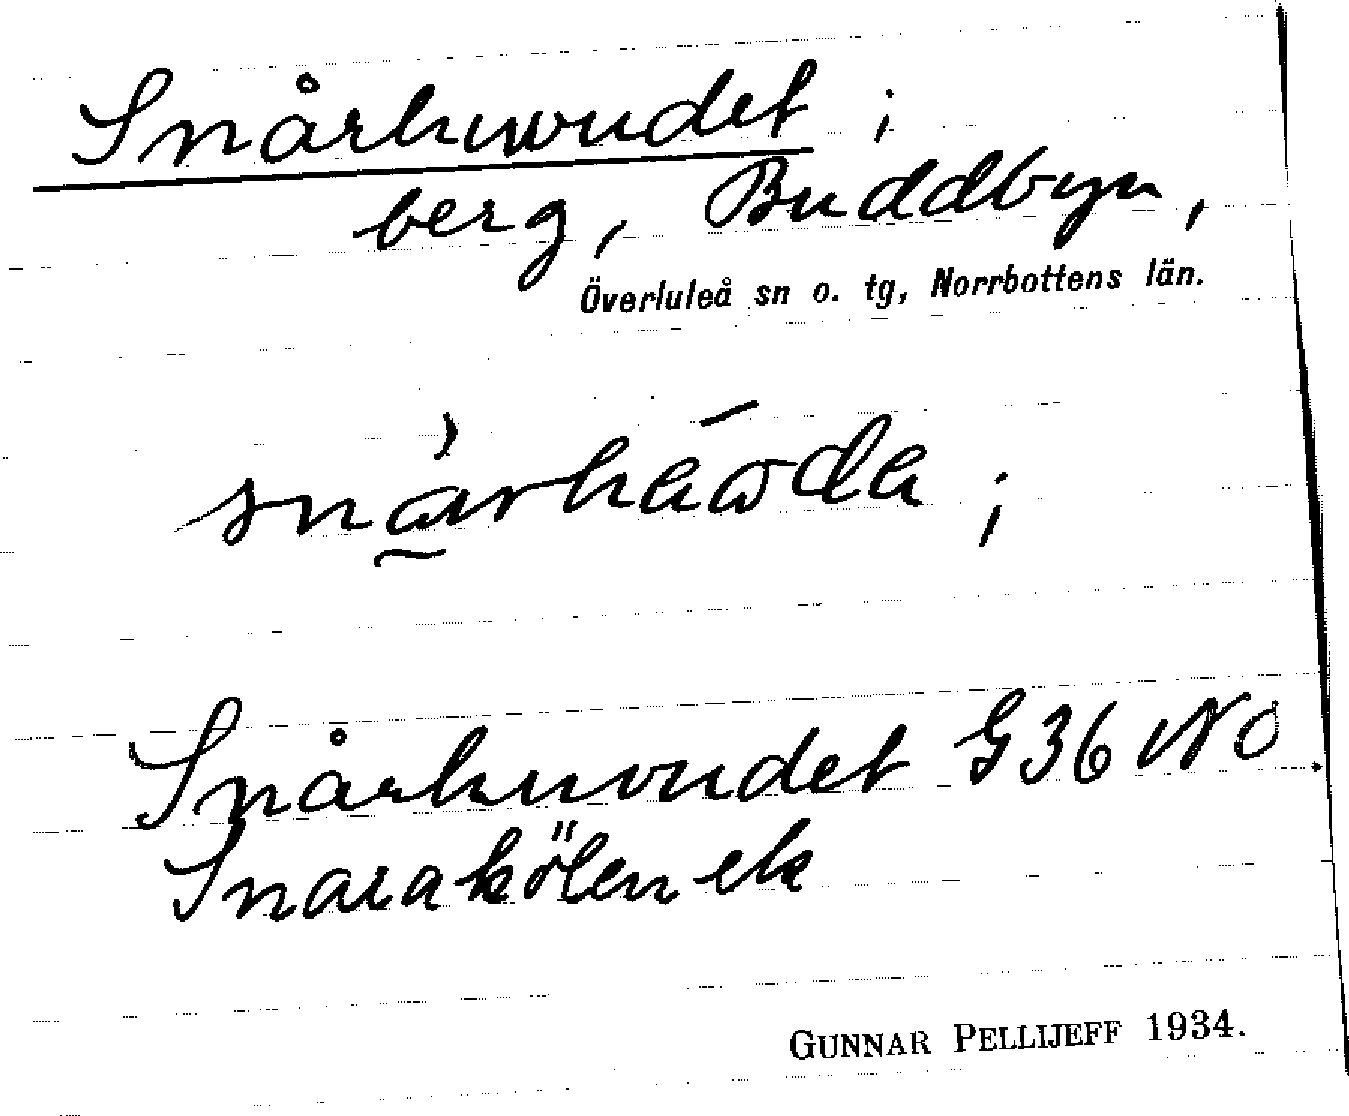 Snårhuvudet ;
berg, Buddbyn,
Överluleå sn o. tg, Norrbottens län.
Snårhuvudet G36 NO
Snarakölen ek
GUNNAR PELLIJEFF 1934.